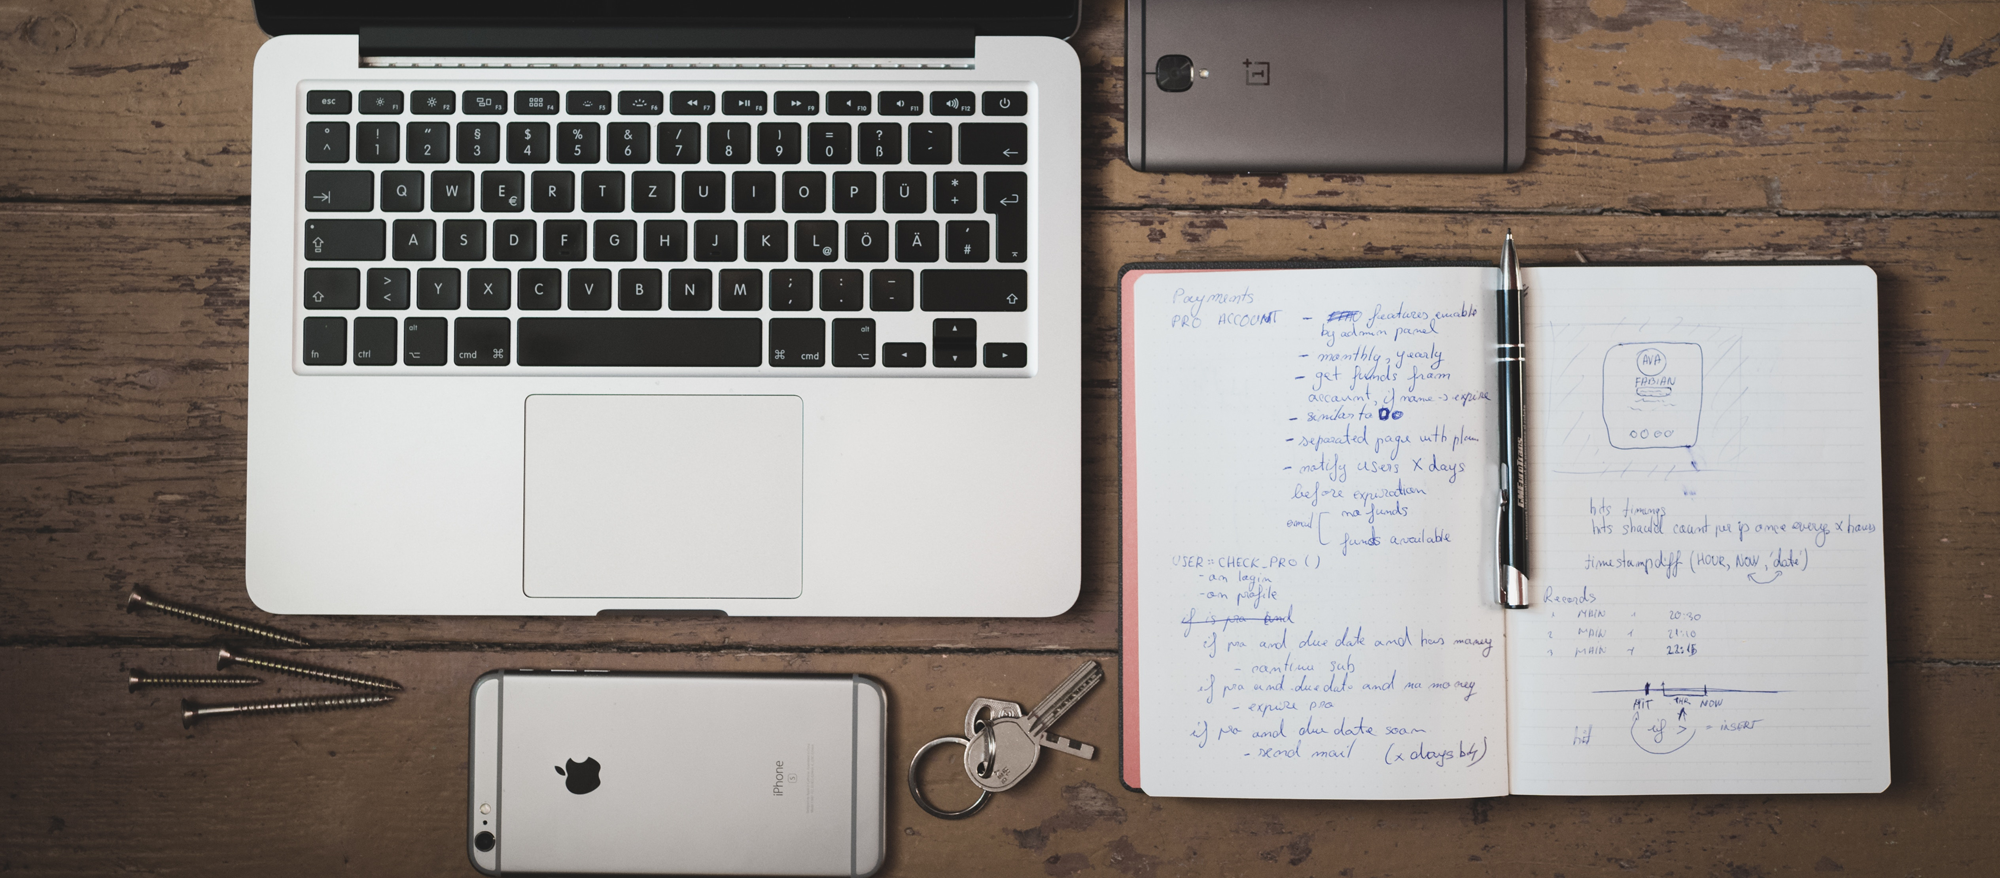 esc F1 F2 F3 F4 F5 F6 F7 F8 F9 F10 F11 F12
° ! " § $ % & / ( ) = ? `
^ 1 2 3 4 5 6 7 8 9 0 ß ´
Q W E € R T Z U I O P Ü * +
A S D F G H J K L @ Ö Ä ' #
> < Y X C V B N M ; , : . _ -
fn ctrl alt cmd ⌘ ⌘ cmd alt
iPhone
S
Payments
PRO ACCOUNT - features enable
by admin panel
- monthly, yearly
- get funds from
account, if none -> expire
- similar to
- separated page with plan
- notify users X days
before expiration
email no funds
funds available
USER::CHECK_PRO ()
- on login
- on profile
if is pro and
if pro and due date and has money
- continue sub
if pro and due date and no money
- expire pro
if pro and due date soon
- send mail (x days b4)
AVA
FABIAN
hits timings
hits should count per ip once every x hours
timestampdiff (HOUR, NOW, 'date')
Records
1 MAIN 1 20:30
2 MAIN 1 21:10
3 MAIN 1 22:15
HIT 1HR NOW
hit if > = INSERT